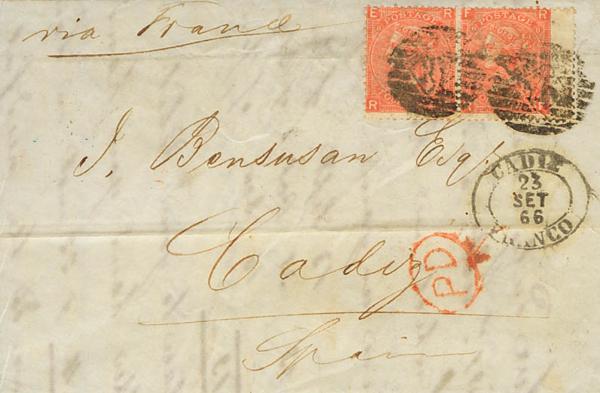 via France
E R
POSTAGE
R
F R
POSTAGE
J. Bensusan Esqr.
CADIZ
23
SET
66
FRANCO
Cadiz
PD
Spain